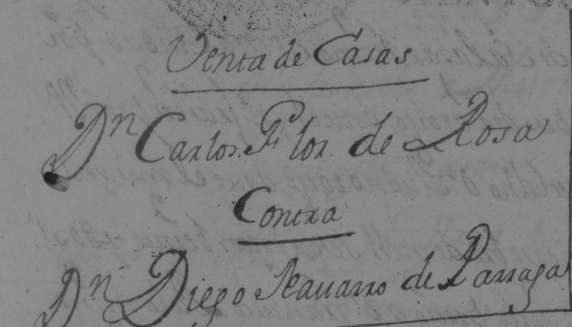 Venta de Casas
Dn Carlos Flor de Rosa
Contra
Dn Diego Navarro de Parraga